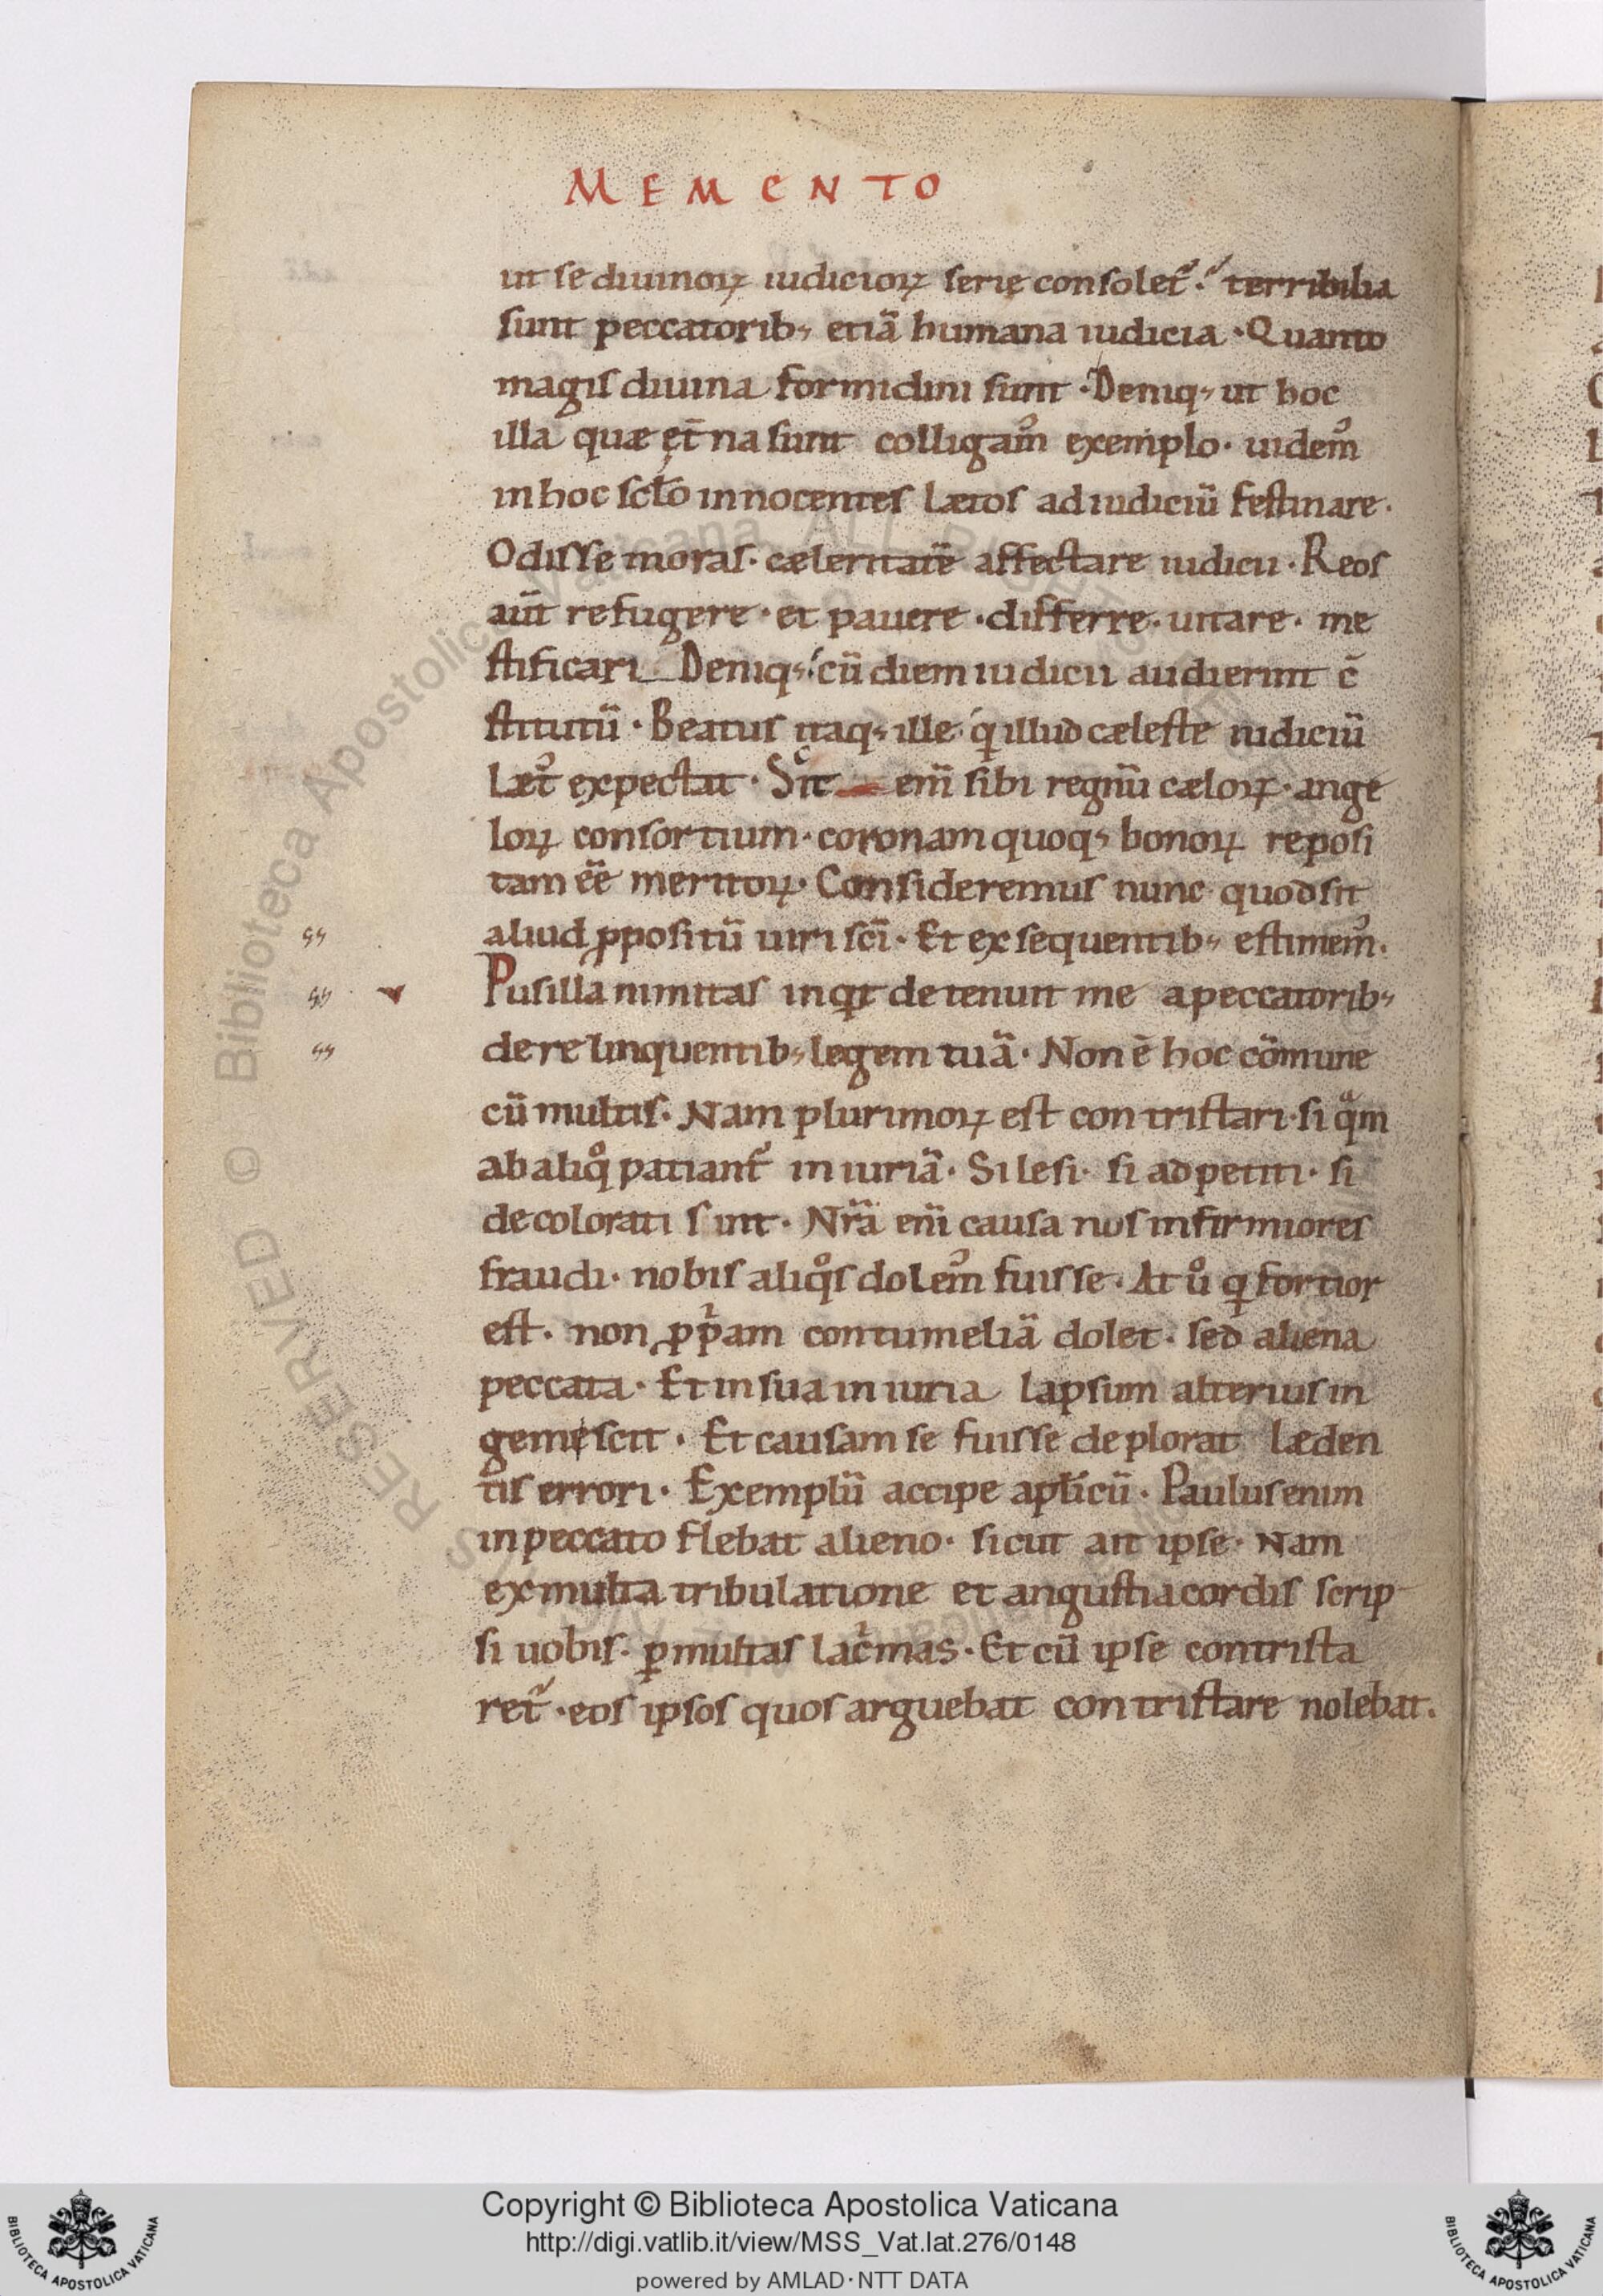 MEMENTO
ut se diuinoꝝ iudicioꝝ serie consolet᷑. terribilia
sunt peccatorib; etiā humana iudicia · Quanto
magis diuina formidini sunt · Deniq; ut hoc
illa quæ et̄na sunt colligam᾿ exemplo · uidem᾿
in hoc sclo̅ innocentes lætos ad iudiciū festinare ·
Odisse moras · cæleritatē affectare iudicii · Reos
aūt refugere · et pauere · differre · uitare · me
stificari Deniq; cū diem iudicii audierint c̄
stitutū · Beatus itaq; ille q illud cæleste iudiciū
læt᾿ expectat · Scit enī sibi regnū cæloꝝ · ange
loꝝ consortium · coronam quoq; bonoꝝ reposi
tam eē meritoꝝ · Consideremus nunc quod sit
ꝯ aliud ꝓpositū uiri scī · Et ex sequentib; estimem᾿ ·
Pusillanimitas inqt detenuit me a peccatorib;
derelinquentib; legem tuā · Non ē hoc cōmune
cū multis · Nam plurimoꝝ est contristari · si qͣm
ab aliqͦ patiant᷑ iniuriā · Si lesi · si adpetiti · si
decolorati sint · Nr̄ā enī causa nos infirmiores
fraudi · nobis aliqͦs dolem᾿ fuisse · At uͦ q fortior
est · non ꝓpͥam contumeliā dolet · sed aliena
peccata · Et in sua iniuria lapsum alterius in
gemescit · Et causam se fuisse deplorat læden
tis errori · Exemplū accipe aplicū · Paulus enim
in peccato flebat alieno · sicut ait ipse · Nam
ex multa tribulatione et angustia cordis scrip
si uobis · ꝑ multas lacͥmas · Et cū ipse contrista
ret᷑ · eos ipsos quos arguebat contristare nolebat ·
© Biblioteca Apostolica Vaticana ALL RIGHTS RESERVED
Copyright © Biblioteca Apostolica Vaticana
http://digi.vatlib.it/view/MSS_Vat.lat.276/0148
powered by AMLAD·NTT DATA
BIBLIOTECA APOSTOLICA VATICANA
BIBLIOTECA APOSTOLICA VATICANA